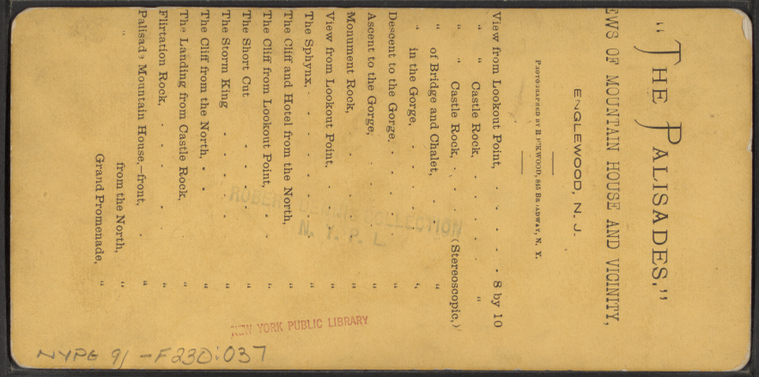 "THE PALISADES."
EWS OF MOUNTAIN HOUSE AND VICINITY,
ENGLEWOOD, N. J.
PHOTOGRAPHED BY B CKWOOD, 845 BR ADWAY, N. Y.
View from Lookout Point, . . . . 8 by 10
" " Castle Rock, . . . "
" " Castle Rock, . . . (Stereoscopic,)
" of Bridge and Chalet, . . "
" in the Gorge, . . . "
Descent to the Gorge, . . . "
Ascent to the Gorge, . . . "
Monument Rock, . . . "
View from Lookout Point, . . . "
The Sphynx, . . . . "
The Cliff and Hotel from the North, . "
The Cliff from Lookout Point, . . "
The Short Cut . . . . "
The Storm King . . . . "
The Cliff from the North, . . "
The Landing from Castle Rock, . . "
Flirtation Rock, . . . . "
Palisade Mountain House,—front, . "
" from the North, "
Grand Promenade, "
ROBERT COLLECTION
N. Y. P. L.
NEW YORK PUBLIC LIBRARY
NYPG 91-F230:037